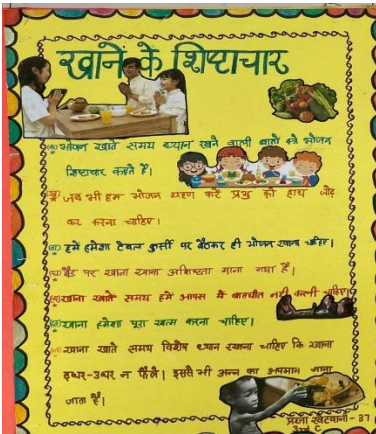 खाने के शिष्टाचार
भोजन खाते समय ध्यान रखने वाली बातों को भोजन
शिष्टाचार कहते हैं।
जब भी हम भोजन ग्रहण करें प्रभु को हाथ जोड़
कर करना चाहिए।
हमें हमेशा टेबल कुर्सी पर बैठकर ही भोजन खाना चाहिए।
बैड पर खाना खाना अशिष्टता माना गया है।
खाना खाते समय हमें आपस में बातचीत नहीं करनी चाहिए।
खाना हमेशा पूरा खत्म करना चाहिए।
खाना खाते समय विशेष ध्यान रखना चाहिए कि खाना
इधर-उधर न फैले। इससे भी अन्न का अपमान माना
जाता है।
- 37
C